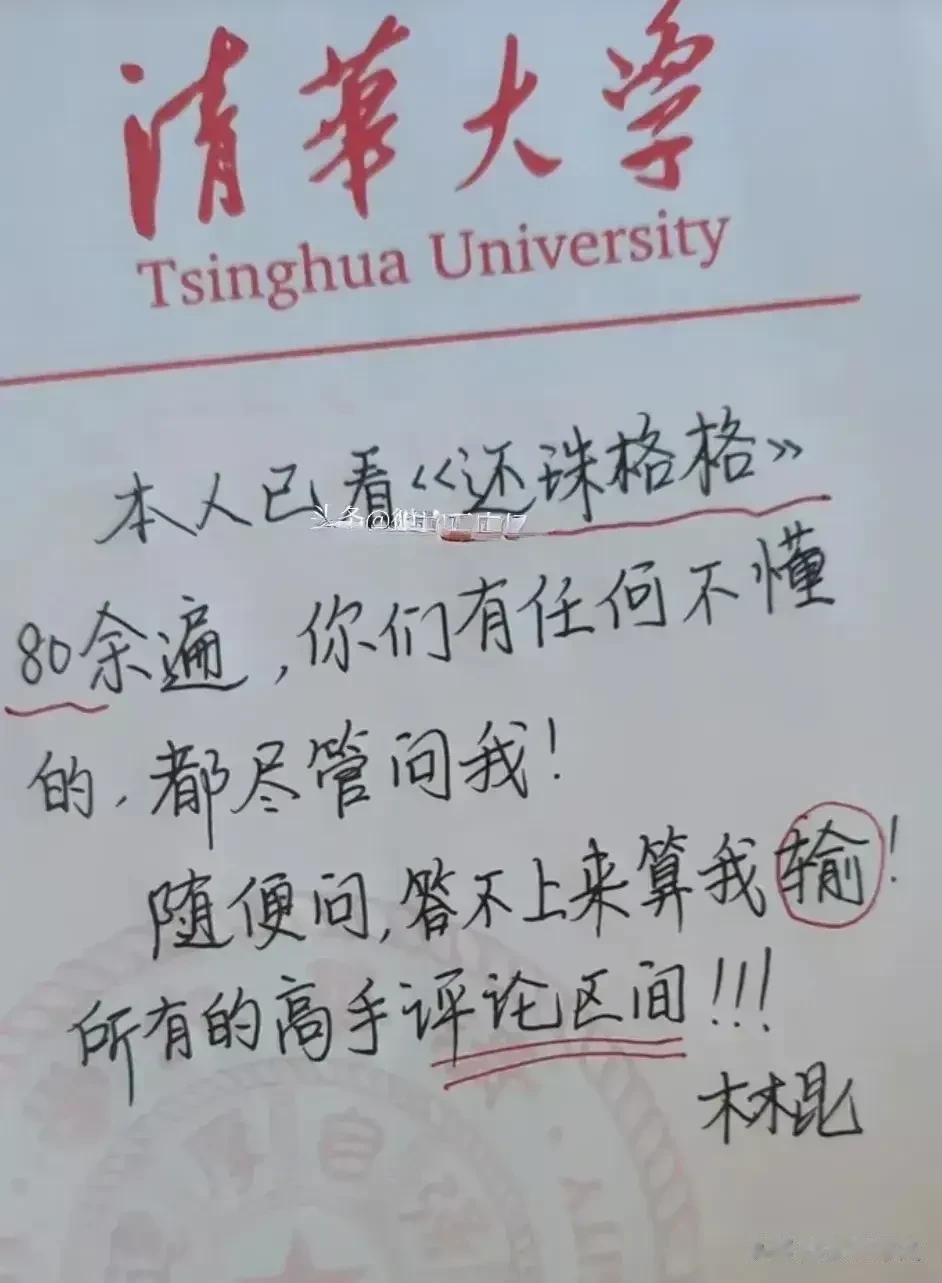 清華大学
Tsinghua University
本人已看《还珠格格》
80余遍，你们有任何不懂
的，都尽管问我！
随便问，答不上来算我输！
所有的高手评论区间！！！
林昆
头条@
自